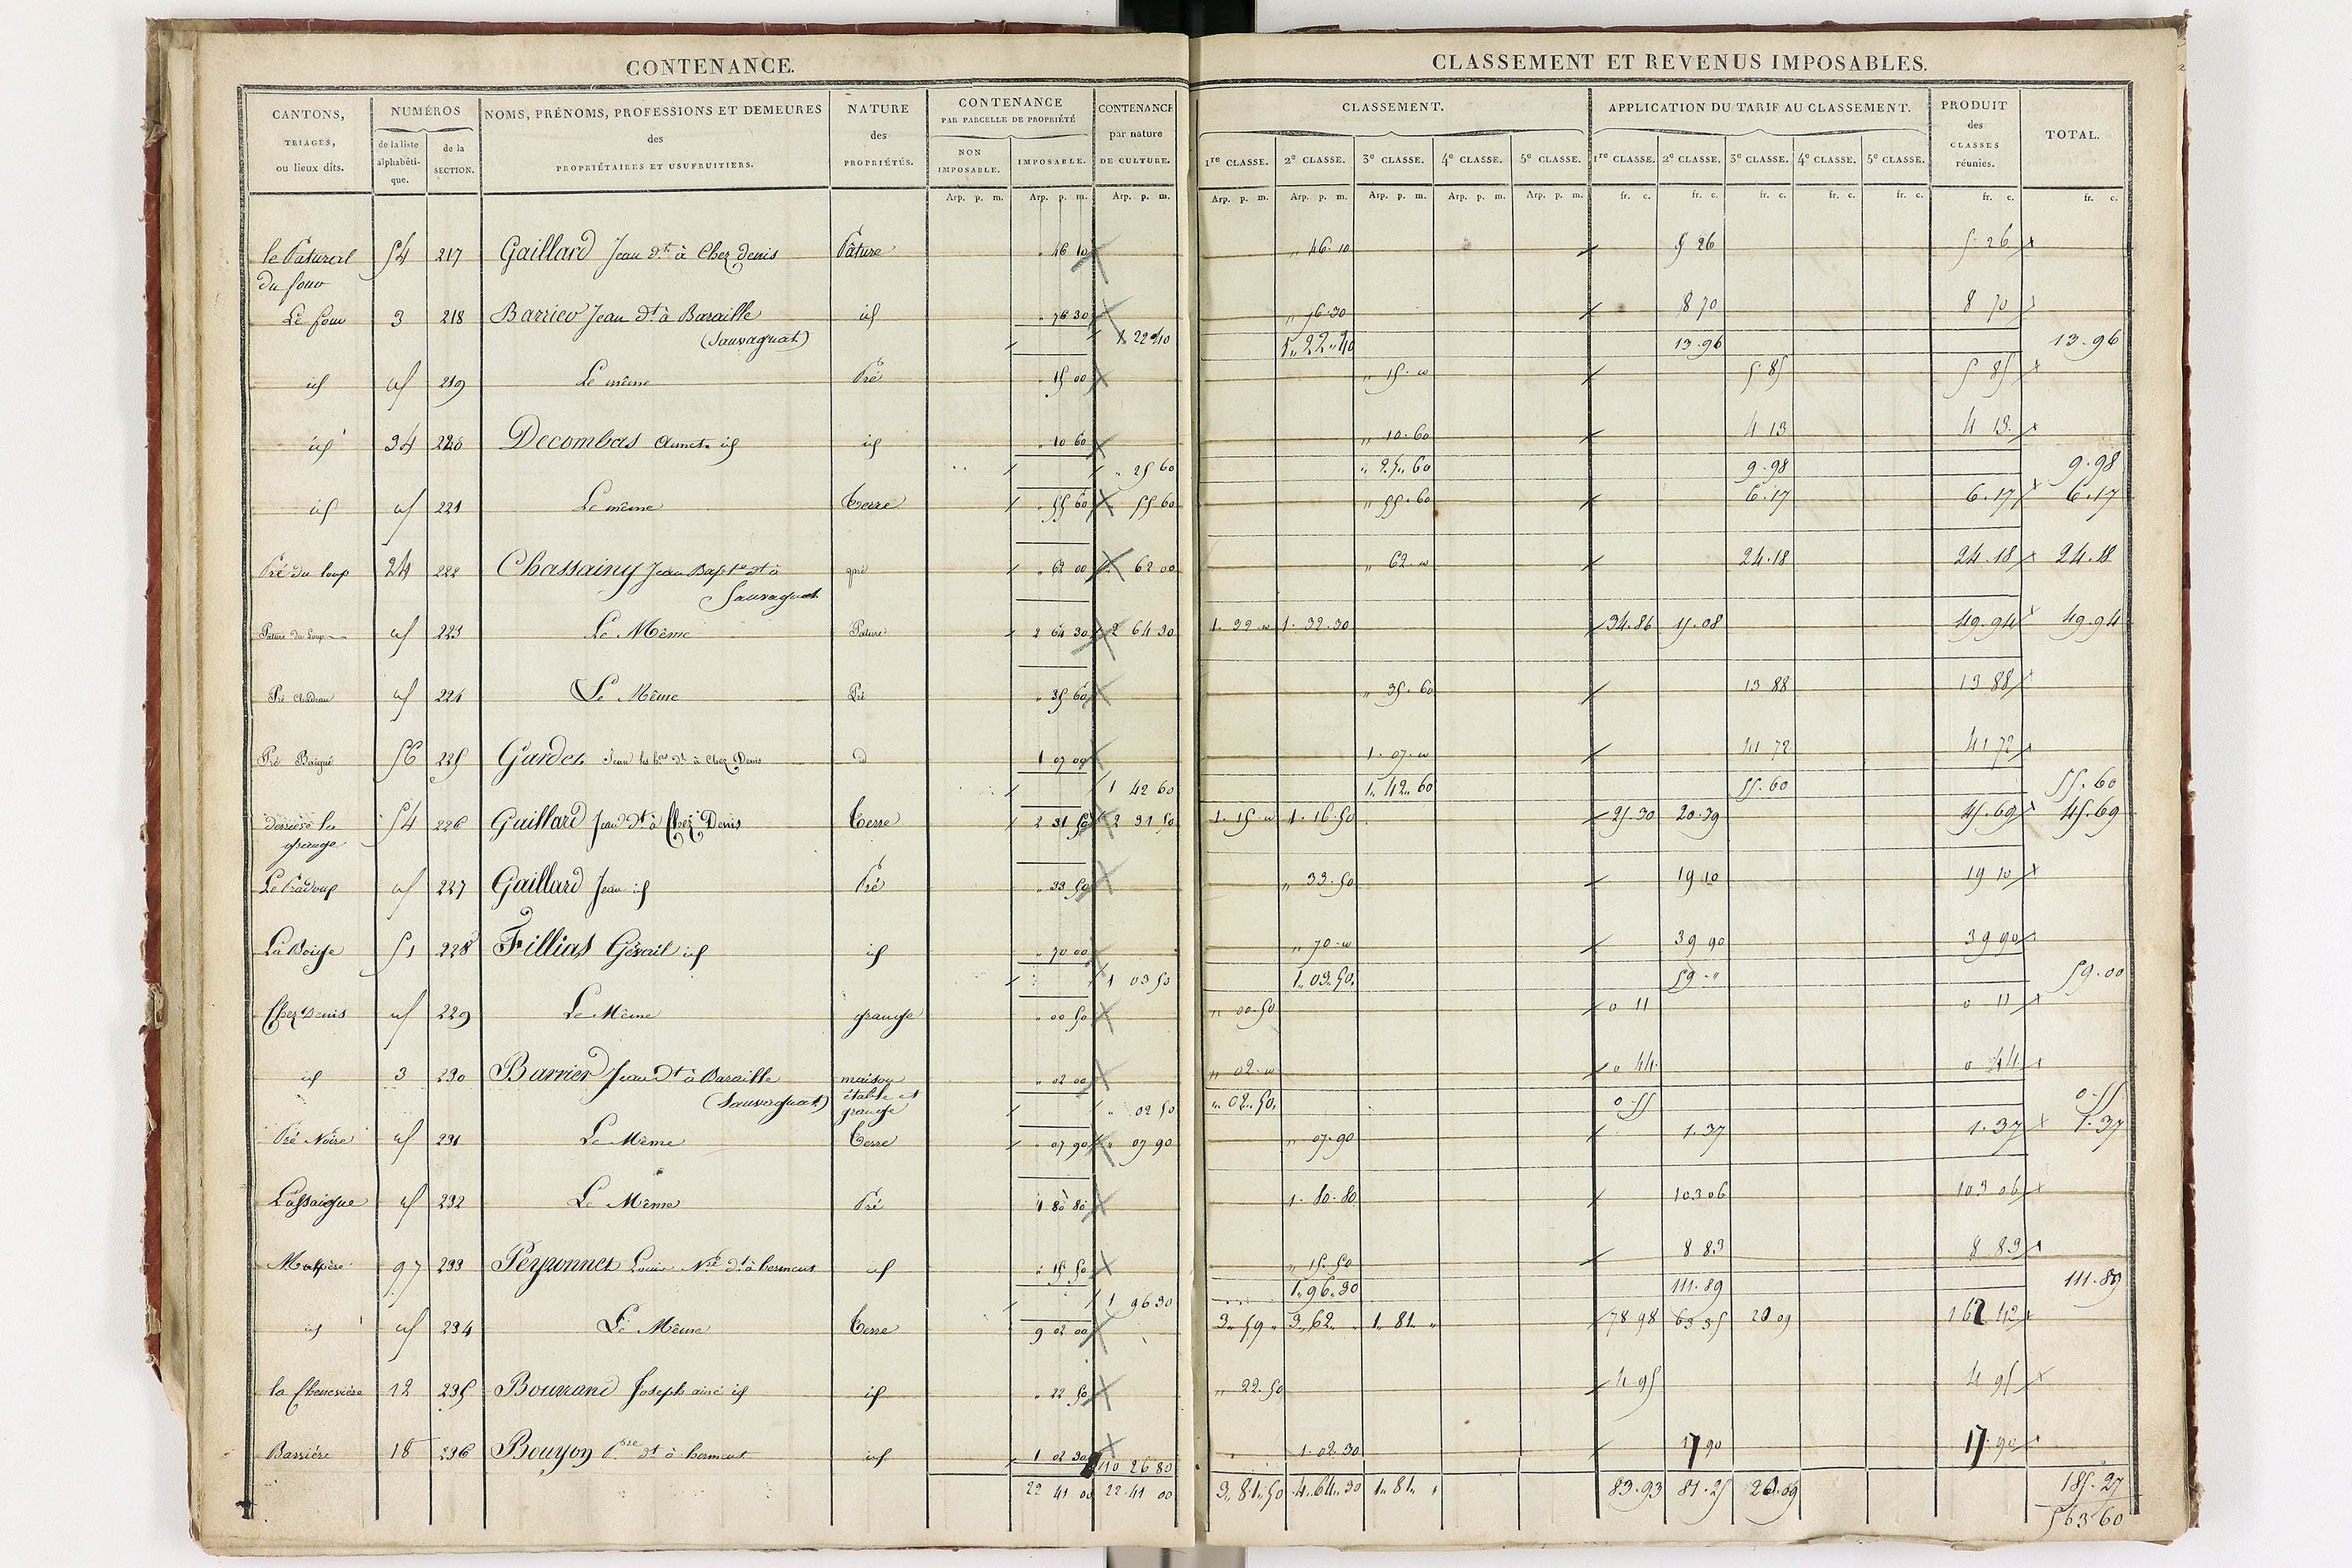 CONTENANCE.
CANTONS, TRIAGES, ou lieux dits.
NUMÉROS
de la liste alphabétique.
de la SECTION.
NOMS, PRÉNOMS, PROFESSIONS ET DEMEURES des PROPRIÉTAIRES ET USUFRUITIERS.
NATURE des PROPRIÉTÉS.
CONTENANCE PAR PARCELLE DE PROPRIÉTÉ
NON IMPOSABLE.
IMPOSABLE.
CONTENANCE par nature DE CULTURE.
Arp. p. m. Arp. p. m. Arp. p. m.
le Patural 54 217 Gaillard Jean dt. à Chez Denis Pâture " 46 10
du four
Le four 3 218 Barrier Jean dt à Baraille id " 76 30
(Sauvagnat) 1 22 40
id id 219 Le même Pré " 15 00
id 34 220 Decombas Annet id id " 10 60
" 25 60
id id 221 Le même Terre " 55 60 55 60
Pré du loup 24 222 Chassaing Jean Bapte dt à pré " 62 00 62 00
Sauvagnat
Pature du Loup id 223 Le Même Pature 2 64 30 2 64 30
Pré id 224 Le Même Pré " 35 60
Pré 56 225 Gardet Jean dt à Chez Denis id 1 07 00
1 42 60
derrière la 54 226 Gaillard Jean dt à Chez Denis Terre 2 31 50 2 31 50
grange
id 227 Gaillard Jean id Pré " 33 50
51 228 Fillias id id " 70 00
1 03 50
Chez Denis id 229 Le Même grange " 00 50
id 3 230 Barrier Jean dt à Baraille maison " 02 00
(Sauvagnat) étable et
grange " 02 50
Pré Noire id 231 Le Même Terre " 07 90 " 07 90
Lassaigne id 232 Le Même Pré 1 80 80
97 233 Peyronnet Louis Nre dt à herment id " 15 50
1 96 30
id id 234 Le Même Terre 9 02 00
la Chenevière 12 235 Bounand Joseph ainé id id " 22 50
Barrière 18 236 Bouyon dt à herment id 1 02 30
10 26 80
22 41 00 22 41 00
CLASSEMENT ET REVENUS IMPOSABLES.
CLASSEMENT.
APPLICATION DU TARIF AU CLASSEMENT.
PRODUIT des CLASSES réunies.
TOTAL.
1re CLASSE. 2e CLASSE. 3e CLASSE. 4e CLASSE. 5e CLASSE. 1re CLASSE. 2e CLASSE. 3e CLASSE. 4e CLASSE. 5e CLASSE.
Arp. p. m. Arp. p. m. Arp. p. m. Arp. p. m. Arp. p. m. fr. c. fr. c. fr. c. fr. c. fr. c. fr. c. fr. c.
" 46.10 5 26 5 26
" 76.30 8 70 8 70
1.. 22.. 40 13.96 13.96
" 15. 00 5.85 5 85
" 10.60 4 13 4 13
" 25.. 60 9.98 9.98
" 55.60 6.17 6.17 6.17
" 62.00 24.18 24.18 24.18
1. 32.00 1. 32.30 34.86 15.08 49.94 49.94
" 35.60 13 88 13 88
1. 07.00 41 72 41 72
1.. 42.. 60 55.60 55.60
1. 15.00 1. 16.50 25.30 20.39 45.69 45.69
" 33.50 19 10 19 10
" 70.00 39 90 39 90
1.. 03.. 50. 59. " 59.00
" 00.50 0 11 0 11
" 02.00 0 44 0 44
" 02.. 50. 0 55 0.55
" 07.90 1.37 1.37 1.37
1. 80.80 103 06 103 06
" 15.50 8 83 8 83
1.. 96.. 30 111.89 111.89
3.. 59 " 3.. 62.. " 1.. 81.. " 78 98 63 35 20 09 162 42
" 22.50 4 95 4 95
1.02.30 17 90 17.90
3.. 81.. 50 4.. 64.. 30 1.. 81.. " 83.93 81.25 20.09 185.27
563 60